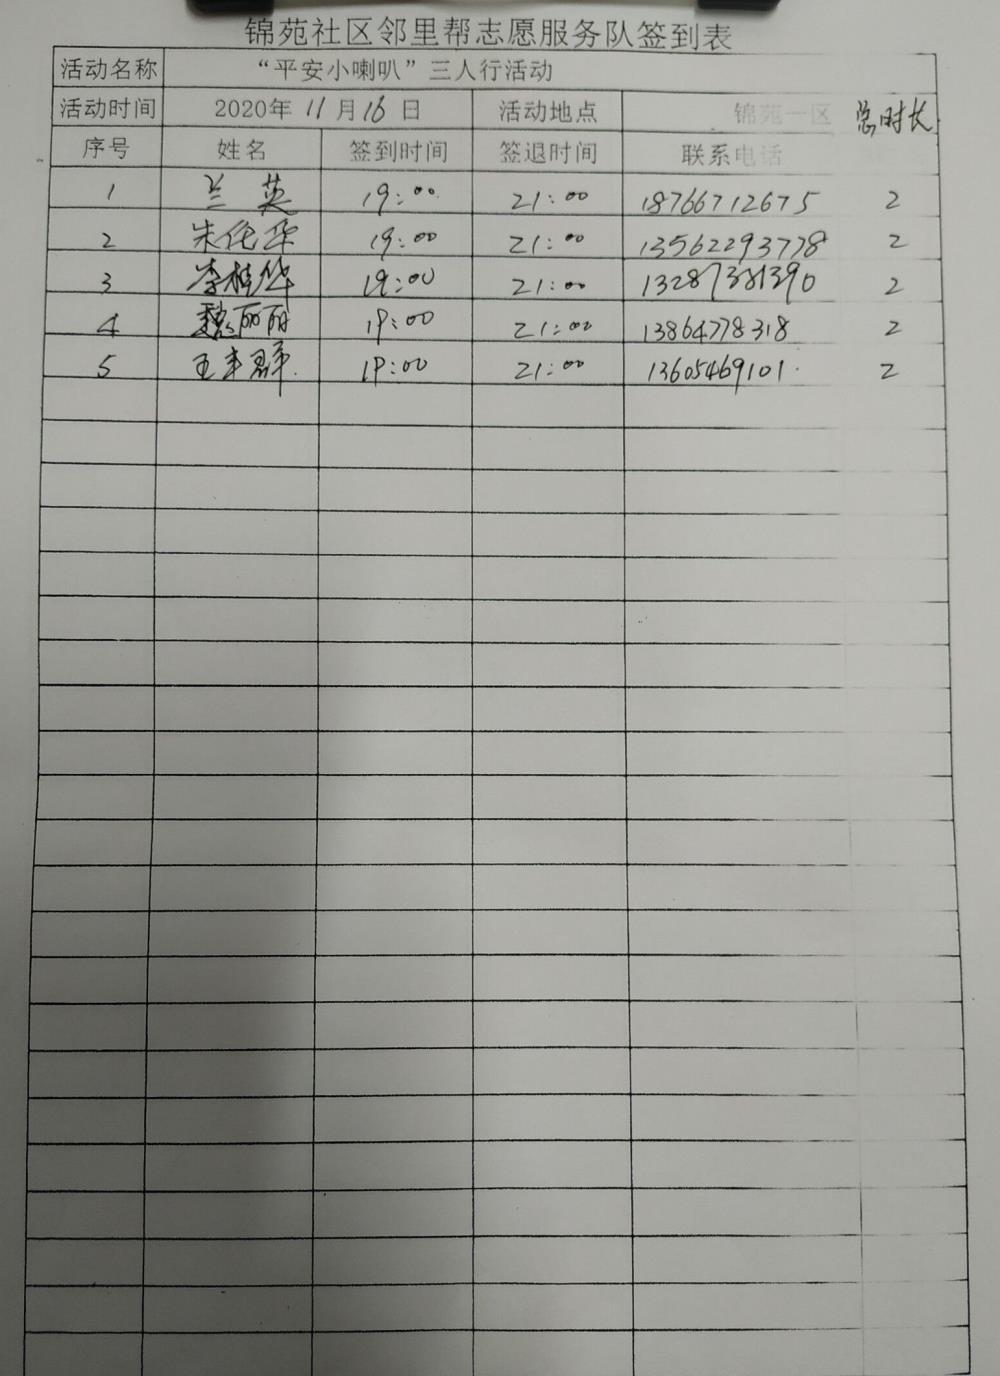 锦苑社区邻里帮志愿服务队签到表
活动名称 “平安小喇叭”三人行活动
活动时间 2020年 11 月 16 日 活动地点 锦苑一区 总时长
序号 姓名 签到时间 签退时间 联系电话
1 兰英 19:00 21:00 18766712675 2
2 朱传华 19:00 21:00 13562293778 2
3 李桂华 19:00 21:00 13287381390 2
4 魏丽丽 19:00 21:00 13864778318 2
5 王丰群 19:00 21:00 13605469101 2